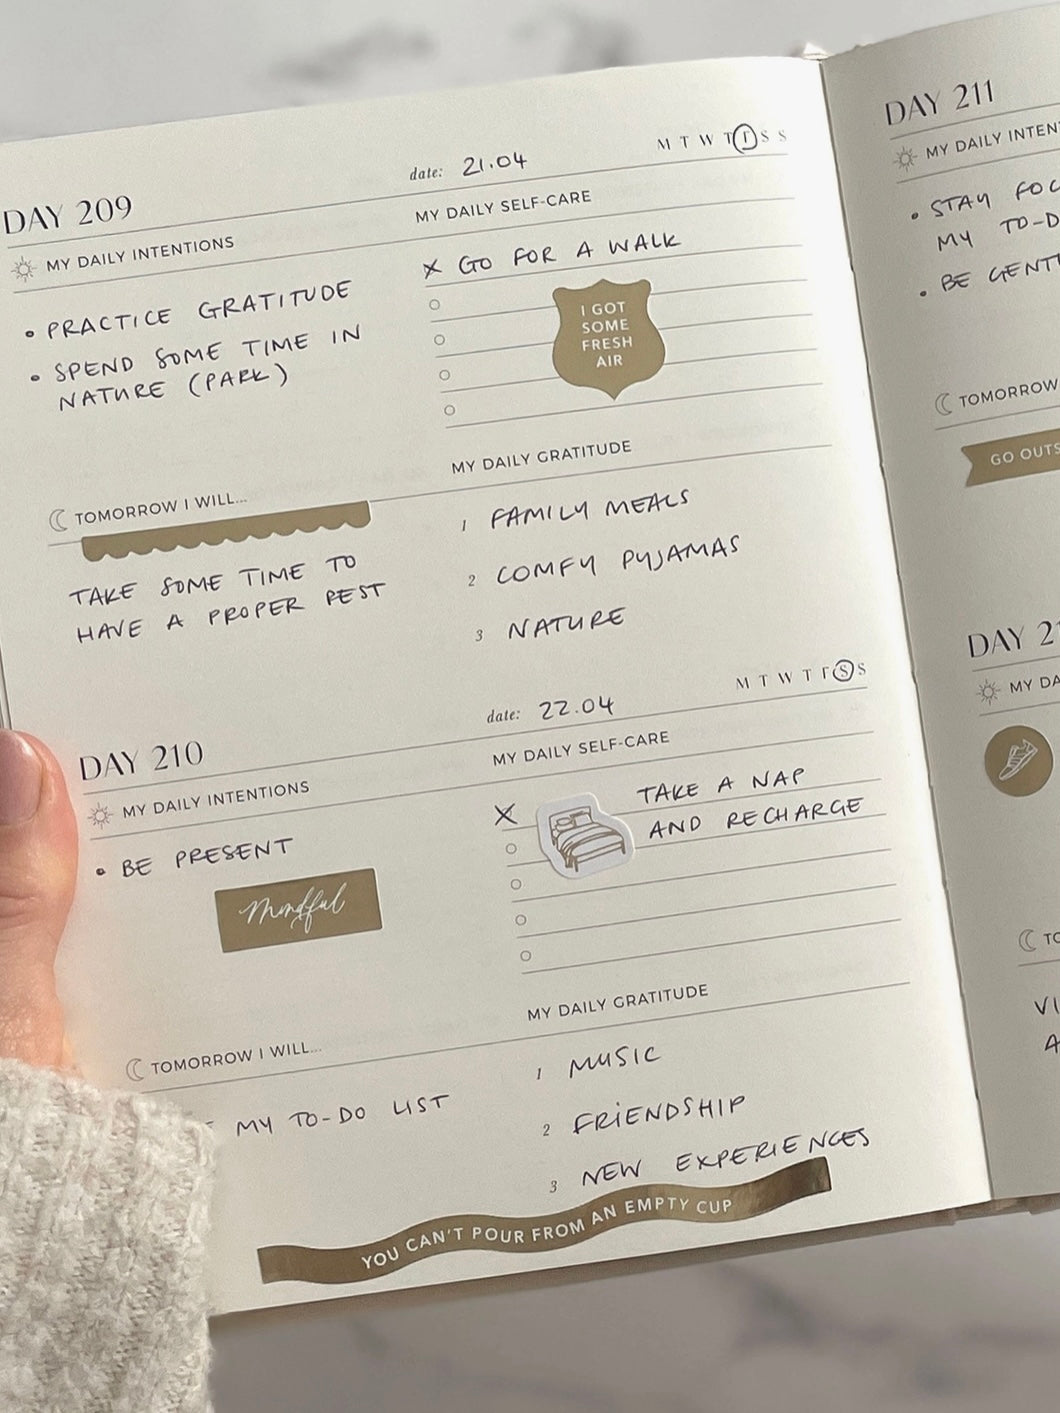 DAY 209
date: 21.04
M T W T F S S
MY DAILY INTENTIONS
• PRACTICE GRATITUDE
• SPEND SOME TIME IN
NATURE (PARK)
MY DAILY SELF-CARE
X GO FOR A WALK
I GOT
SOME
FRESH
AIR
TOMORROW I WILL...
TAKE SOME TIME TO
HAVE A PROPER REST
MY DAILY GRATITUDE
1 FAMILY MEALS
2 COMFY PYJAMAS
3 NATURE
DAY 210
date: 22.04
M T W T F S S
MY DAILY INTENTIONS
• BE PRESENT
Mindful
MY DAILY SELF-CARE
X TAKE A NAP
AND RECHARGE
TOMORROW I WILL...
MY TO-DO LIST
MY DAILY GRATITUDE
1 MUSIC
2 FRIENDSHIP
3 NEW EXPERIENCES
YOU CAN'T POUR FROM AN EMPTY CUP
DAY 211
MY DAILY
• STAY
MY
• BE
TOMORROW
GO
DAY
MY